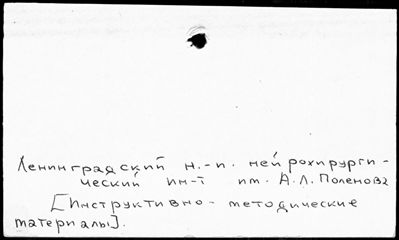 Ленинградский н.-и. нейрохирурги-
ческий ин-т им. А.Л. Поленова
[Инструктивно-методические
материалы].